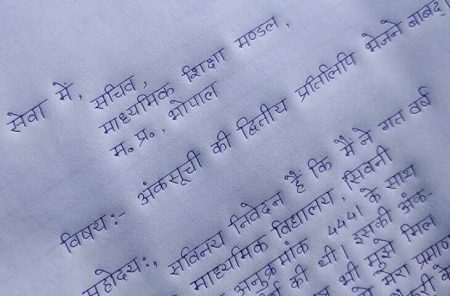 सेवा में, सचिव,
माध्यमिक शिक्षा मण्डल,
म. प्र., भोपाल
विषय:- अंकसूची की द्वितीय प्रतिलिपि भेजने बाबद।
महोदय:, सविनय निवेदन है कि मैं ने गत वर्ष
माध्यमिक विद्यालय, सिवनी
अनुक्रमांक 4441 के साथ
की थी। इसकी अंक-
भी मुझे मिल
मेरा प्रमाण